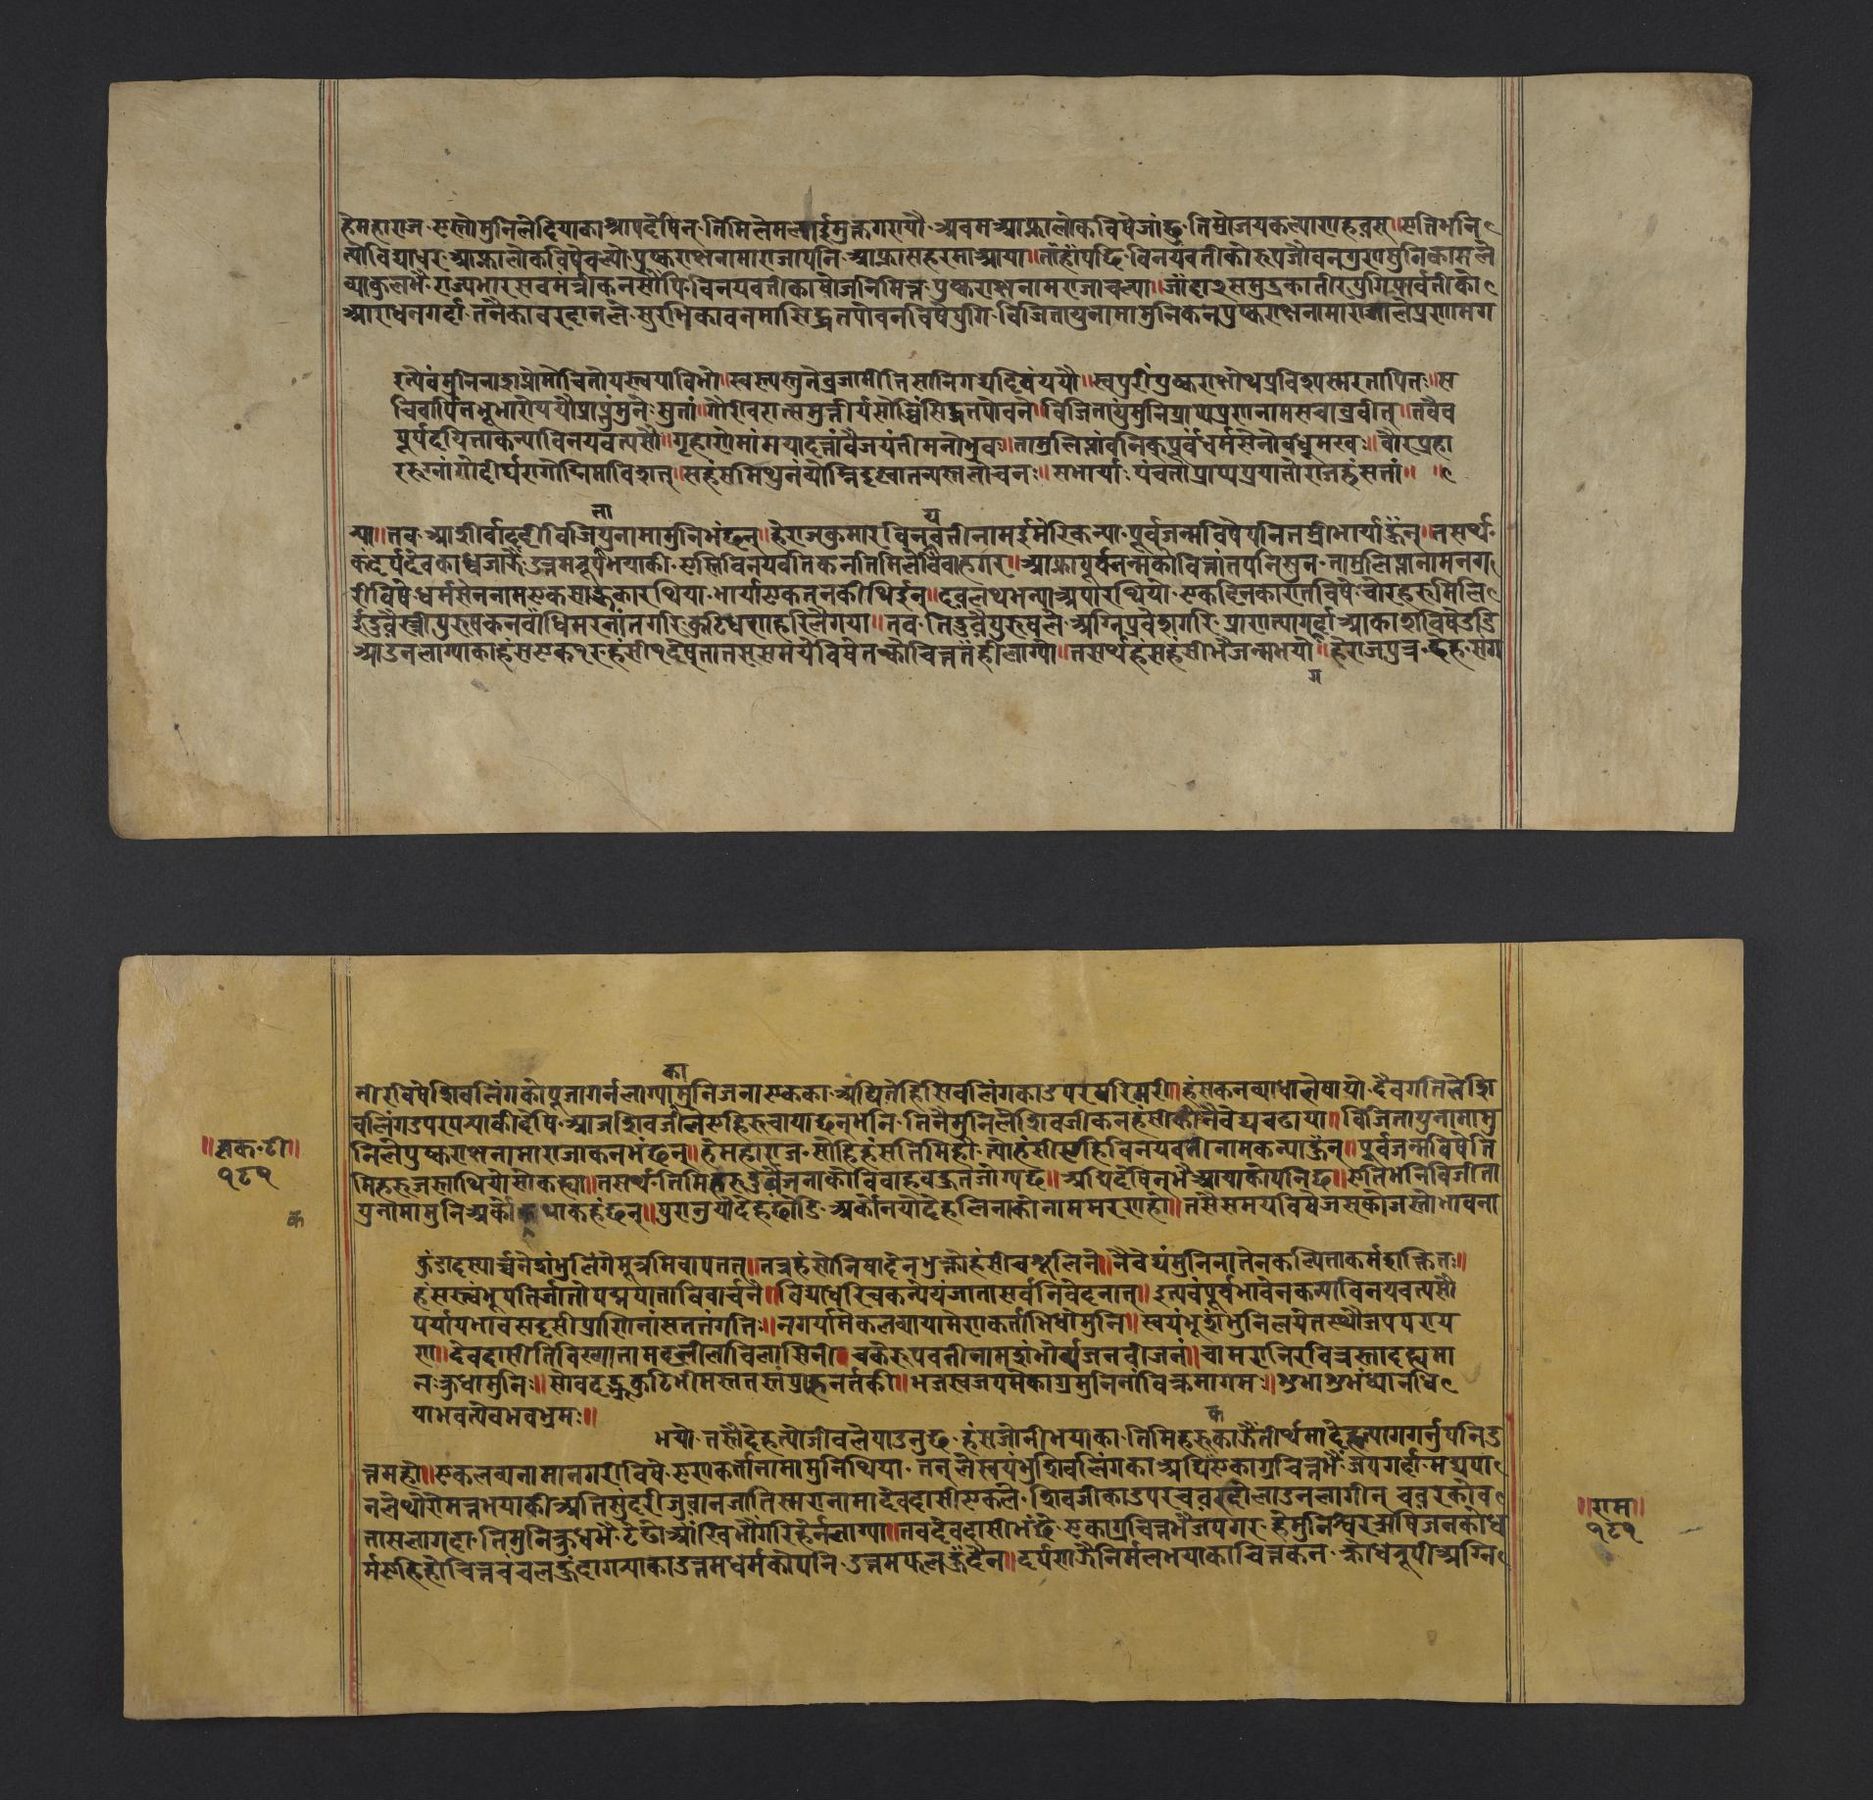 हेमहाराज एस्तो मुनिले दियाका श्राप देषिन् तिमिले मलाई मुक्त गरायौ अब म आफ्ना लोक विषे जांछु तिम्रो जय कल्याण हवस् ॥ एति भनि
त्यो विद्याधर आफ्ना लोक विषे चल्यो पुष्कराक्ष नामा राजा पनि आफ्ना सहरमा आया ॥ ताँहाँ पछि विनयवती को रूप जौवन गुण सुनि कामले
व्याकुल भै राज्यभार सब मंत्री कन सोंपि विनयवती का षोज निमित्त पुष्कराक्ष नाम राजा चल्या ॥ जांदा २ समुद्र का तीर पुगि पार्वती को
आराधन गर्दा तनै का वरदान ले सुरभिका वनमा सिद्ध तपोवन विषे पुगि विजितायु नामा मुनि कन पुष्कराक्ष नामा राजाले प्रणाम ग
इत्येवं मुनिना शप्तो मोचितोयस्त्वयाविभो ॥ स्वस्त्यस्तु ते व्रजामीति सानिगद्यदिवं ययौ ॥ स्वपुरीं पुष्कराक्षोथ प्रविश्य स्मरतापितः ॥ स
चिवार्पितभूभारो ययौ प्राप्तुं मुनेः सुतां ॥ गौरीवरात्समुत्तीर्य सोब्धिं सिद्धतपोवने ॥ विजितायुं मुनिं प्राप्य प्रणनाम स चाब्रवीत् ॥ तवैव
पूर्वदयिता कन्या विनयवत्यसौ ॥ गृहाणेमां मया दत्तां वैजयंती मनोभुवः ॥ ताम्रलिप्तां वनिक् पूर्वं धर्मसेनो बभूमख ॥ चौरप्रहा
रुग्नांगो दीर्घरागोग्निमाविशत् ॥ सहंसमिथुनं व्योम्नि दृष्ट्वा तन्यस्तलोचनः ॥ सभार्यः पंचतां प्राप्य प्रयातो राजहंसतां ॥
न्या ॥ तब आशीर्वाद दी विजितायु नामा मुनि भंछन् ॥ हे राजकुमार विनयवती नाम ईं मेरि कन्या पूर्वजन्म विषे पनि तम्री भार्या हुन् ॥ तसर्थ
कंदर्प देवका ध्वजा झैं उत्तम रूप भयाकी एस्ति विनयवति कन तिमिले विवाह गर ॥ आफ्ना पूर्वजन्म को वित्तांत पनि सुन ताम्रलिप्ता नाम नग
री विषे धर्मसेन नाम एक साहुकार थियो भार्या एक तनकी थिईन् ॥ दवलथ भन्या अपार थियो एक दिन का रात विषे चोरहरु मिलि
ई दुवै स्त्री पुरुष कन वांधि मरनांन गरि कुटि धन हरि लैगया ॥ तब ति दुवै पुरुषले अग्नि प्रवेश गरि प्राण त्याग गर्दा आकाश विषे उडि
आउन लाग्याका हंस एक १ रु हंसी १ देषुता तस् समये विषे तन्को चित्त तंही लाग्यो ॥ तसर्थ हंस हंसी भै जन्म भयो ॥ हे राजपुत्र हंस संग
तीर विषे शिवलिंग को पूजा गर्न लाग्या मुनि जना एकका अघि तेहि सिवलिंगका उपर षसि मरी ॥ हंस कन व्याधाले षायो दैवगतिले शि
वलिंग उपर पर्‍याकी देषि आज शिवजीले एहि रुचायाछन् भनि तिनै मुनिले शिवजी कन हंसीको नैवेद्य चढाया ॥ विजितायु नामा मु
निले पुष्कराक्ष नामा राजा कन भंछन् ॥ हेमहाराज सोहि हंस तिमि हौ त्यो हंसी एहि विनयवती नाम कन्या हुन् ॥ पूर्वजन्म विषे ति
मिहरु जस्ता थियो सो कह्या ॥ तसर्थ तिमिहरु दुवै जना को विवाह बहुतै जोग्य छ ॥ अघि देषिन् भै आयाको पनि छ ॥ एति भनि विजिता
यु नामा मुनि अर्को कथा कहंछन् ॥ पुरानु यो देह छोडि अर्को नयो देह लिना को नाम मरण हो ॥ तसै समय विषे जसको जस्तो भावना
कुंडादस्यार्च्चने शंभुलिंगे मूत्रमिवापतत् ॥ तत्र हंसो निषादेन भुक्तो हंसी च शूलिने ॥ नैवेद्यं मुनिना तेन कल्पिता कर्मशक्तितः ॥
हंसस्त्वं भूपतिर्जातो पद्मपाता विवार्चने ॥ विद्याधरि च कन्येयं जाता सर्वनिवेदनात् ॥ इत्येवं पूर्वभावेन कन्या विनयवत्यसौ
पर्यायभाव सदृसी प्राणिनां सततं गतिः ॥ नगर्यामेकलव्यायामेणकर्ताभिधो मुनि ॥ स्वयंभू शंभुनिलये तस्थौ जपपराय
णः ॥ देवदासीति विख्याता मदलीलाविलासिनी ॥ चक्रे रूपवती नाम शंभोर्व्यजनवीजनं ॥ चामरानिरविन्नस्तादह्यमा
नः क्रुधा मुनिः ॥ सोवदद् भ्रुकुटिभीमस्ततस्तं प्राह नर्तकी ॥ भजस्व जपमेकाग्र मुनि नो विक्रमागमः ॥ शुभाशुभं ध्यानंधि
याभवत्येवभवभ्रमः ॥
भयो तसै देह त्यो जीवले पाउनु छ हंस जोनी भयाका तिमिहरु का झैं तीर्थमा देह त्याग गर्नु पनि उ
त्तम हो ॥ एकलव्या नामा नगरी विषे एणकर्ता नामा मुनि थिया तन्ले स्वयंभु शिवलिंगका अघि एकाग्र चित्त भै जप गर्दा मद्य पा
नले थोरो मत्त भयाकी अति सुंदरी जुवान जातिस्मरा नामा देवदासी एकले शिवजीका उपर चवर होलाउन लागीन् चवर को व
तास लाग्दा ति मुनि क्रुध भै टेढो आंखि भौं गरि हेर्न लाग्या ॥ तब देवदासी भंछे एकाग्रचित्त भै जप गर हे मुनिश्वर अषि जनको ध
र्म एहि हो चित्त चंचल हुंदा गर्‍याका उत्तम धर्मको पनि उत्तम फल हुंदैन ॥ दर्पण झैं निर्मल भयाका चित्त कन क्रोध रूपी अग्नि
॥ वृक॰ टी ॥
१८१
॥ राम ॥
१८१